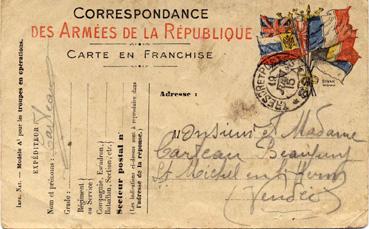 CORRESPONDANCE
DES ARMÉES DE LA RÉPUBLIQUE
CARTE EN FRANCHISE
Adresse :
Monsieur et Madame
St Michel en
(Vendée)
IMPR. NAT. — Modèle A¹ pour les troupes en opérations.
EXPÉDITEUR
Nom et prénoms :
Grade :
Régiment
ou Service
Compagnie, Escadron,
Bataillon, Section, etc.
Secteur postal n°
(Les indications ci-dessus sont à reproduire dans
l'adresse de la réponse.)
TRESOR ET
15